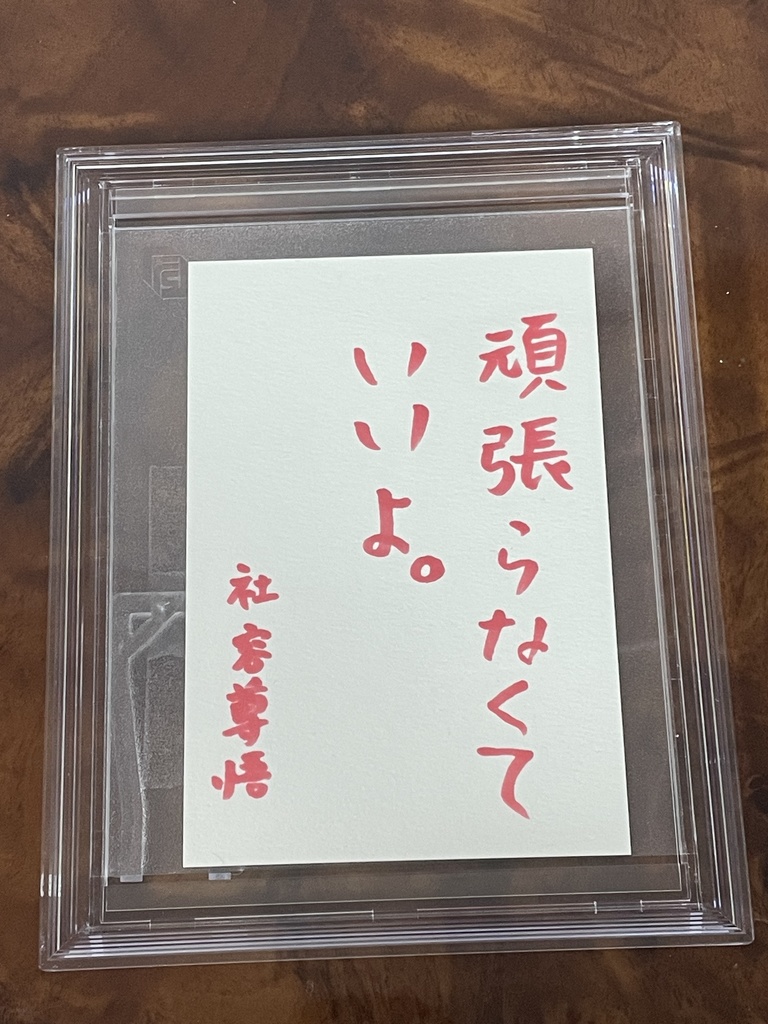 頑張らなくて
いいよ。
社容尊悟